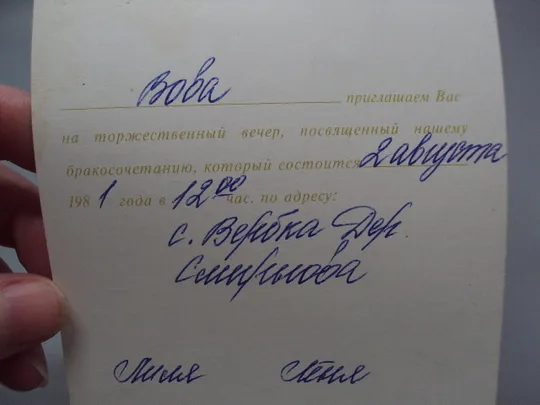 Вова приглашаем Вас
на торжественный вечер, посвященный нашему
бракосочетанию, который состоится 2 августа
1981 года в 12 00 час. по адресу:
с. Вербка Дер.
Смирнова
Лиля Лёня